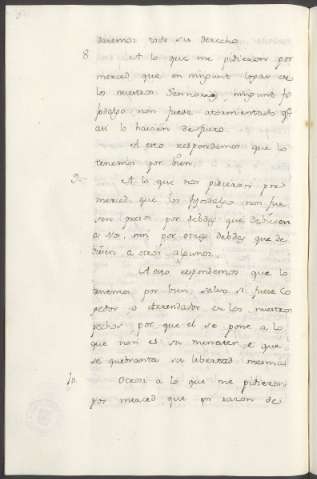 daremos todo su derecho.
8 A lo que me pidieron por
merced que en ningunt logar de
los nuestros Sennorios, ningunt fi
josdalgo non fuese atormentado qe
asi lo habien de fuero.
A esto respondemos que lo
tenemos por bien.
9. A lo que nos pidieron por
merced que los fijosdalgo non fue
sen presos por debdas que debiesen
a Nos, nin por otras debdas que de
biesen a otros algunos.
A esto respondemos que lo
tenemos por bien, salvo si fuese Co
gedor o arrendador en los nuestros
pechos por que el se pone a lo
que non es su menester, e que
se quebranta su libertad mesma
10. Otrosi a lo que me pidieron
por merced que en razon de